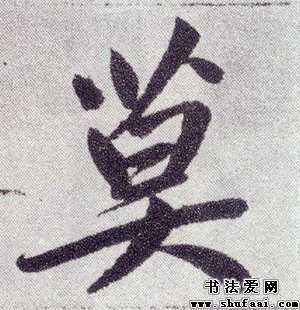 莫
书法爱网
www.shufaai.com